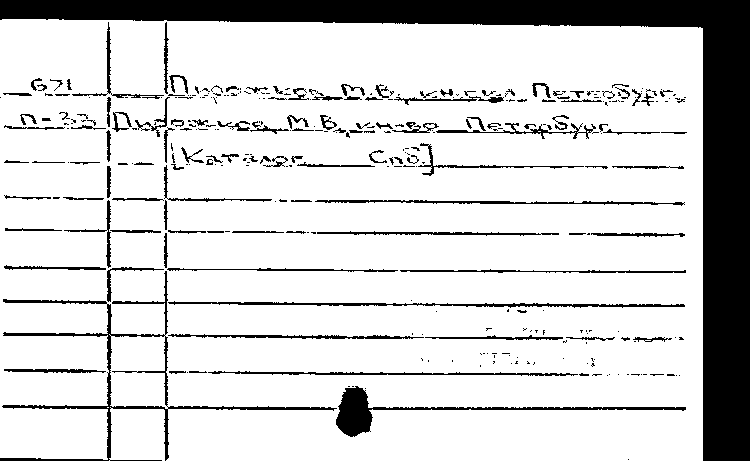 671 Пирожков, М.В., кн.скл. Петербург.
П-33 Пирожков, М.В., кн-во Петербург.
[Каталог. Спб.]